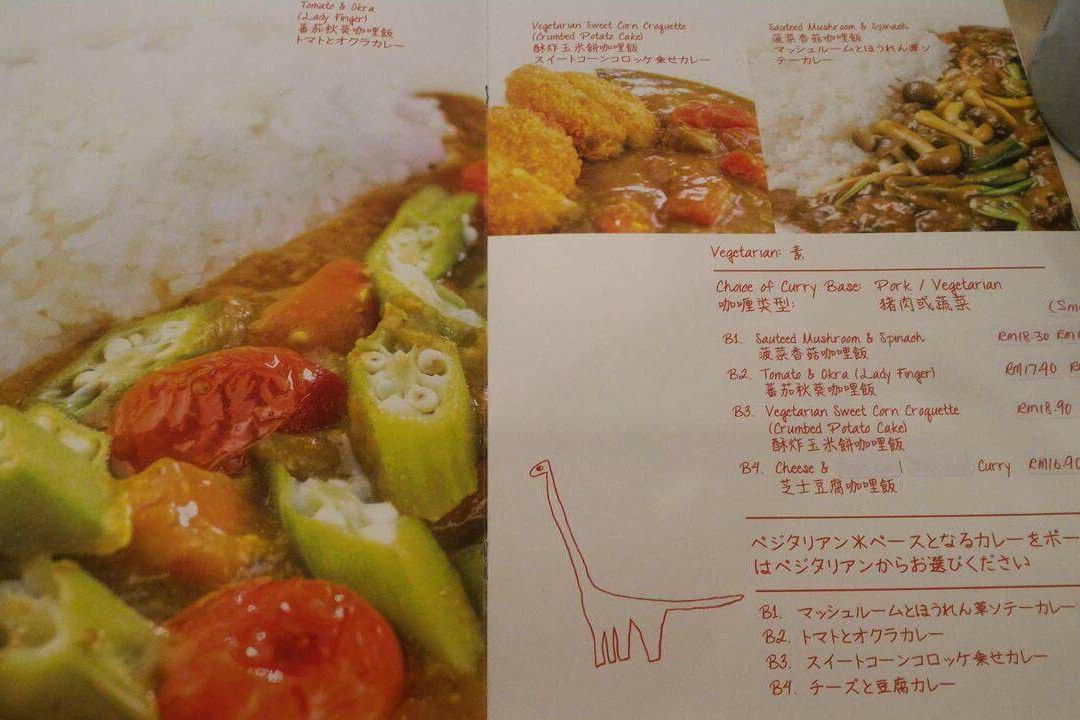 Tomato & Okra
(Lady Finger)
蕃茄秋葵咖哩飯
トマトとオクラカレー
Vegetarian Sweet Corn Croquette
(Crumbed Potato Cake)
酥炸玉米餅咖哩飯
スイートコーンコロッケ乗せカレー
Sauteed Mushroom & Spinach
菠菜香菇咖哩飯
マッシュルームとほうれん草ソ
テーカレー
Vegetarian: 素
Choice of Curry Base: Pork / Vegetarian
咖喱类型: 猪肉或蔬菜
(Sm
B1. Sauteed Mushroom & Spinach RM18.30
菠菜香菇咖哩飯
B2. Tomato & Okra (Lady Finger) RM17.40
蕃茄秋葵咖哩飯
B3. Vegetarian Sweet Corn Croquette RM18.90
(Crumbed Potato Cake)
酥炸玉米餅咖哩飯
B4. Cheese & Curry RM16.90
芝士豆腐咖哩飯
ベジタリアン*ベースとなるカレーをポー
はベジタリアンからお選びください
B1. マッシュルームとほうれん草ソテーカレー
B2. トマトとオクラカレー
B3. スイートコーンコロッケ乗せカレー
B4. チーズと豆腐カレー